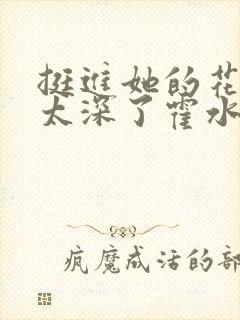 挺进她的花
太深了霍水
疯魔成活的部